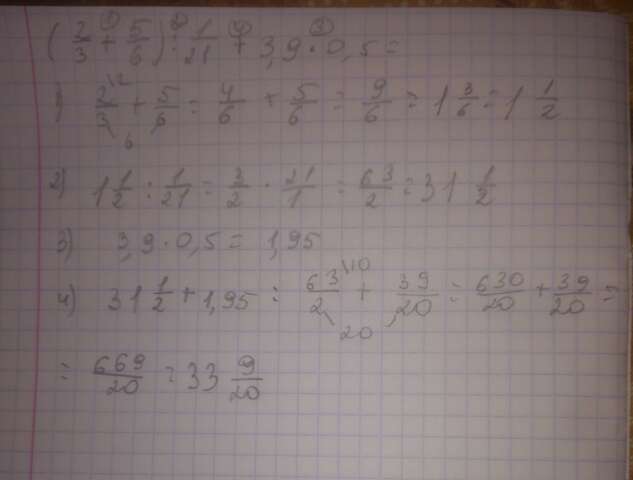 (2/3 + 5/6) : 1/21 + 3,9 · 0,5 =
1) 2/3 + 5/6 = 4/6 + 5/6 = 9/6 = 1 3/6 = 1 1/2
2) 1 1/2 : 1/21 = 3/2 · 21/1 = 63/2 = 31 1/2
3) 3,9 · 0,5 = 1,95
4) 31 1/2 + 1,95 = 63/2 + 39/20 = 630/20 + 39/20 =
= 669/20 = 33 9/20